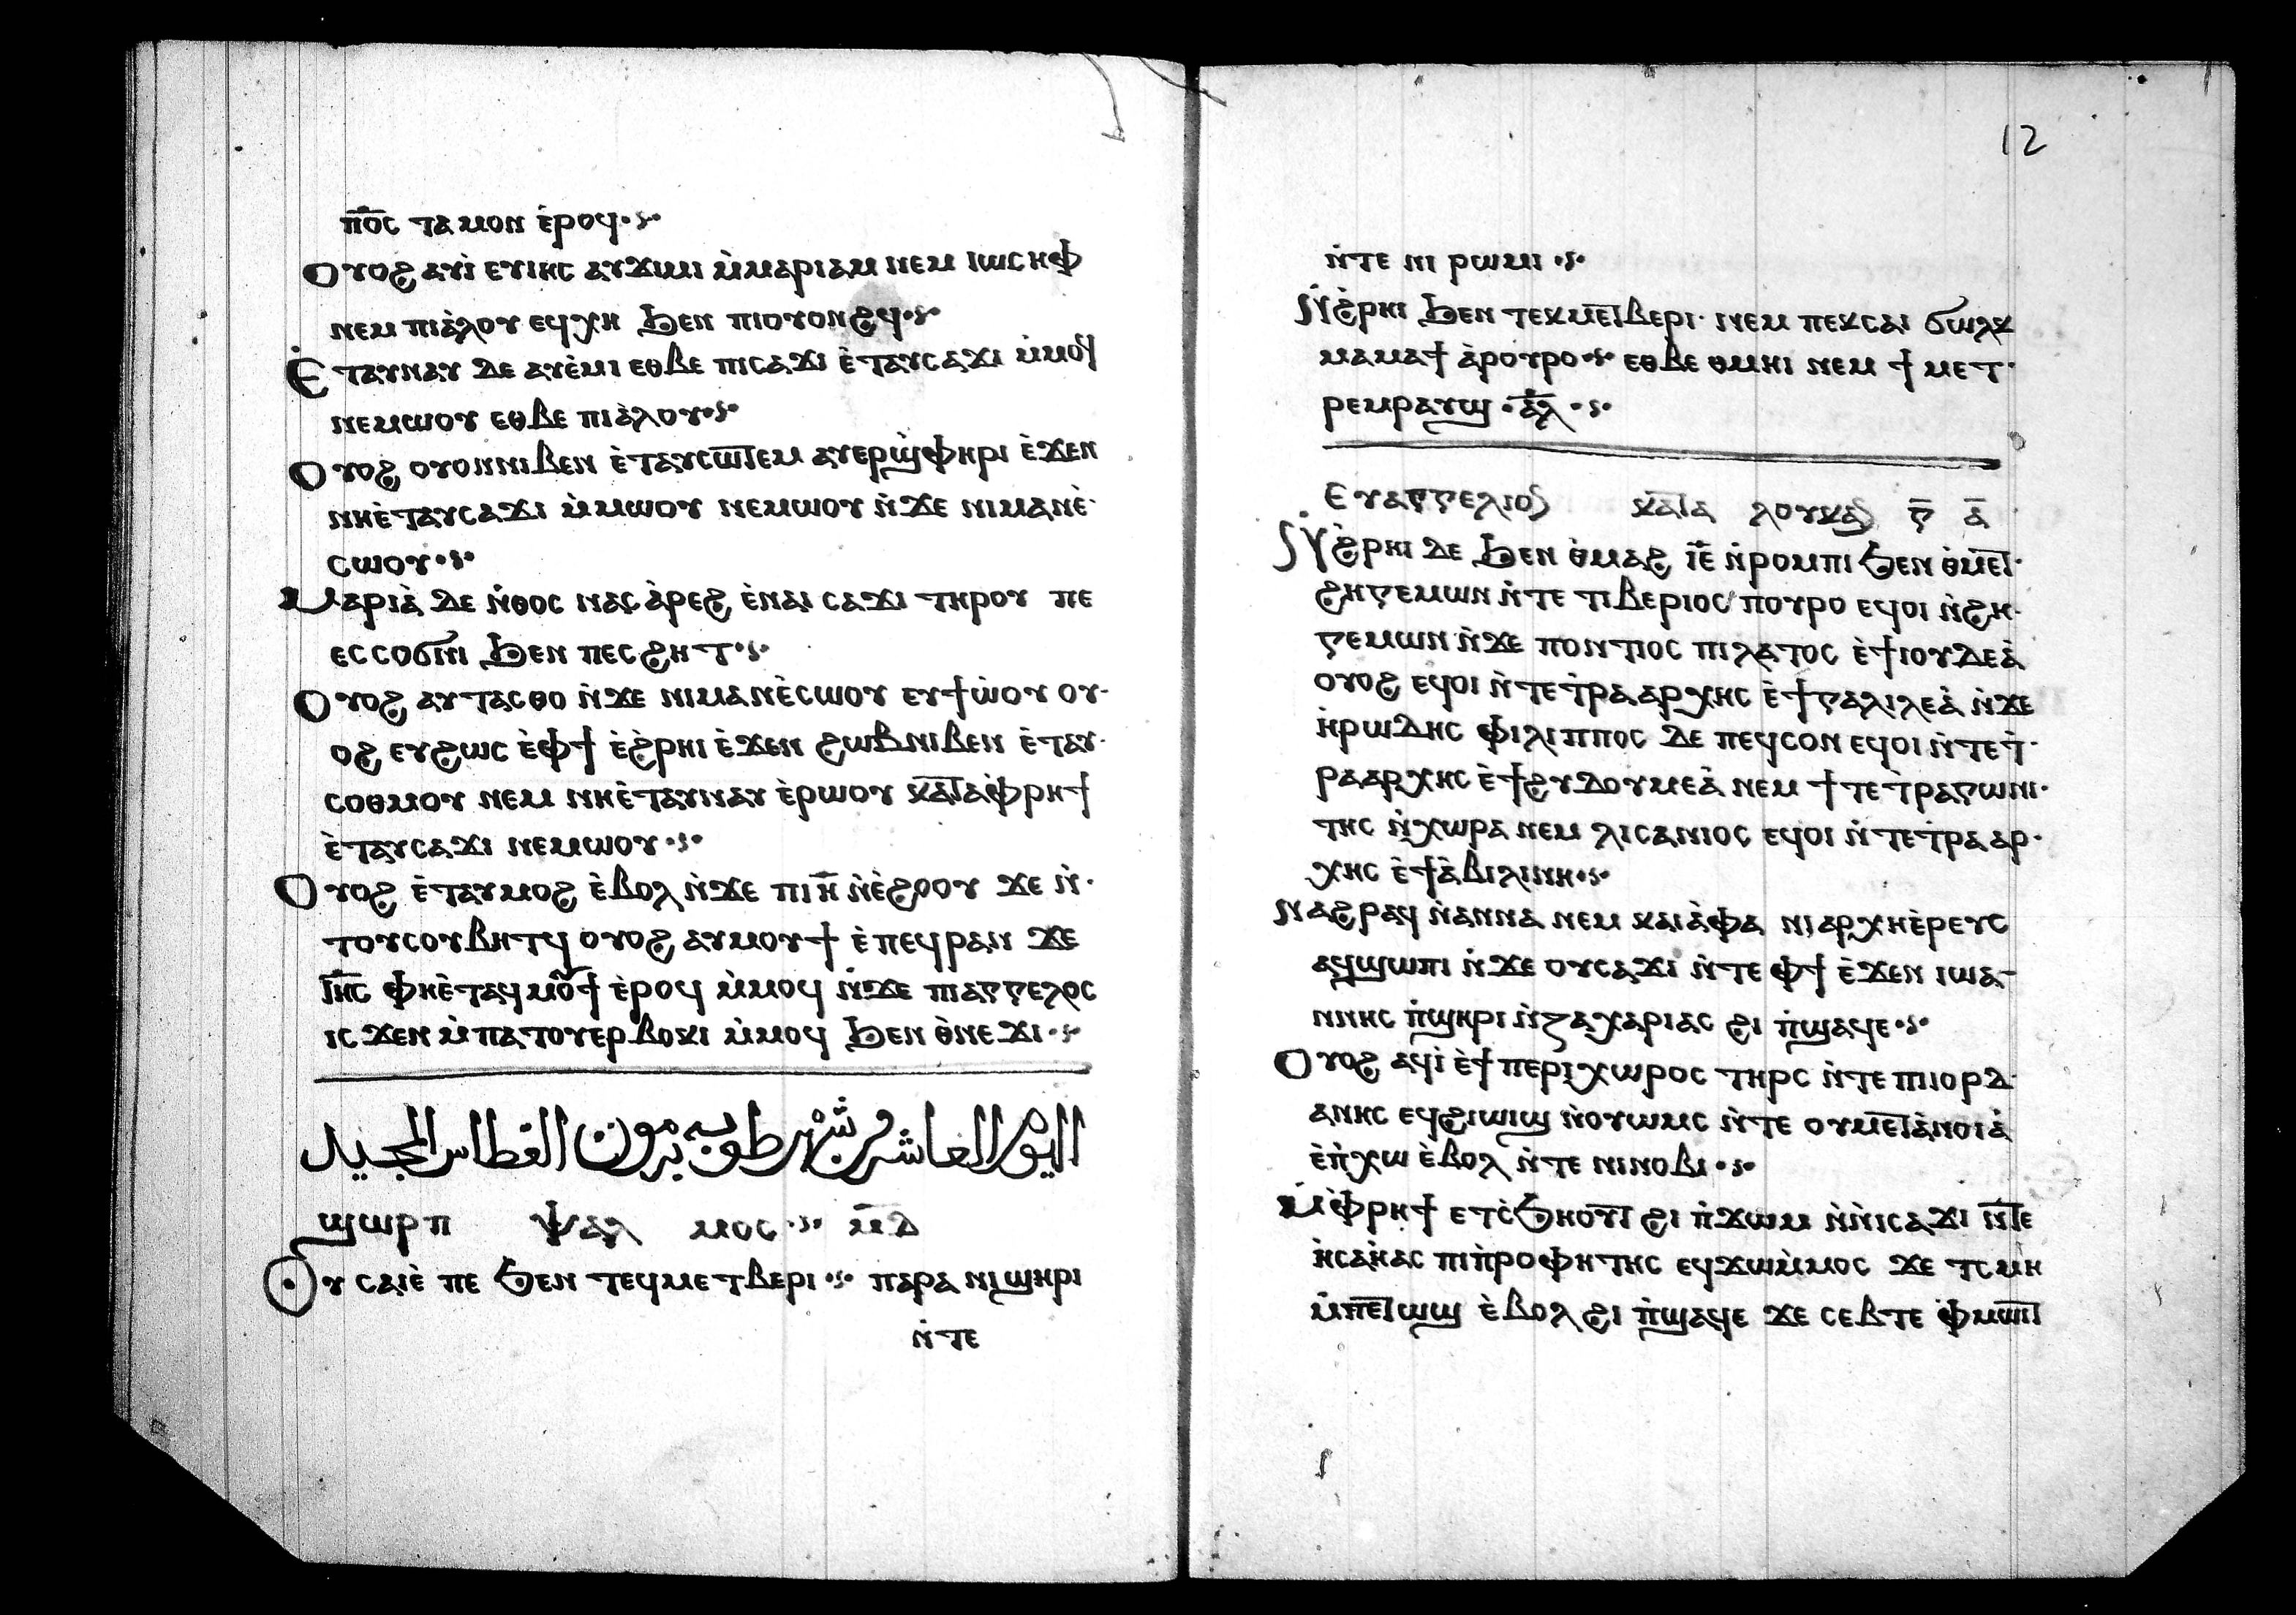 ⲡ̅ⲟ̅ⲥ̅ ⲧⲁⲙⲟⲛ ⲉ̀ⲣⲟϥ
Ⲟⲩⲟϩ ⲁⲩⲓ̀ ⲉⲩⲓⲏⲥ ⲁⲩϫⲓⲙⲓ ⲙ̀ⲙⲁⲣⲓⲁⲙ ⲛⲉⲙ ⲓⲱⲥⲏⲫ
ⲛⲉⲙ ⲡⲓⲁ̀ⲗⲟⲩ ⲉϥⲭⲏ ϧⲉⲛ ⲡⲓⲟⲩⲟⲛϩϥ
Ⲉ̇ⲧⲁⲩⲛⲁⲩ ⲇⲉ ⲁⲩⲉ̀ⲙⲓ ⲉⲑⲃⲉ ⲡⲓⲥⲁϫⲓ ⲉ̀ⲧⲁⲩⲥⲁϫⲓ ⲙ̀ⲙⲟϥ
ⲛⲉⲙⲱⲟⲩ ⲉⲑⲃⲉ ⲡⲓⲁ̀ⲗⲟⲩ
Ⲟⲩⲟϩ ⲟⲩⲟⲛⲛⲓⲃⲉⲛ ⲉ̀ⲧⲁⲩⲥⲱⲧⲉⲙ ⲁⲩⲉⲣϣ̀ⲫⲏⲣⲓ ⲉ̀ϫⲉⲛ
ⲛⲏⲉ̀ⲧⲁⲩⲥⲁϫⲓ ⲙ̀ⲙⲱⲟⲩ ⲛⲉⲙⲱⲟⲩ ⲛ̀ϫⲉ ⲛⲓⲙⲁⲛⲉ̀ⲥⲱⲟⲩ
Ⲙⲁⲣⲓⲁ̀ ⲇⲉ ⲛ̀ⲑⲟⲥ ⲛⲁⲥⲁ̀ⲣⲉϩ ⲉ̀ⲛⲁⲓ ⲥⲁϫⲓ ⲧⲏⲣⲟⲩ ⲡⲉ
ⲉⲥⲥⲟϭⲛⲓ ϧⲉⲛ ⲡⲉⲥϩⲏⲧ
Ⲟⲩⲟϩ ⲁⲩⲧⲁⲥⲑⲟ ⲛ̀ϫⲉ ⲛⲓⲙⲁⲛⲉ̀ⲥⲱⲟⲩ ⲉⲩϯⲱ̀ⲟⲩ ⲟⲩ
ⲟϩ ⲉⲩϩⲱⲥ ⲉ̀ⲫϯ ⲉ̀ϩ̀ⲣⲏⲓ ⲉ̀ϫⲉⲛ ϩⲱⲃⲛⲓⲃⲉⲛ ⲉ̀ⲧⲁⲩ
ⲥⲟⲑⲙⲟⲩ ⲛⲉⲙ ⲛⲏⲉ̀ⲧⲁⲩⲛⲁⲩ ⲉ̀ⲣⲱⲟⲩ ⲕⲁⲧⲁⲫ̀ⲣⲏϯ
ⲉ̀ⲧⲁⲩⲥⲁϫⲓ ⲛⲉⲙⲱⲟⲩ
Ⲟⲩⲟϩ ⲉ̀ⲧⲁⲩⲙⲟϩ ⲉ̀ⲃⲟⲗ ⲛ̀ϫⲉ ⲡⲓⲏ̅ ⲛ̀ⲉ̀ϩⲟⲟⲩ ϫⲉ ⲛ̀
ⲧⲟⲩⲥⲟⲩⲃⲏⲧϥ ⲟⲩⲟϩ ⲁⲩⲙⲟⲩϯ ⲉ̀ⲡⲉϥⲣⲁⲛ ϫⲉ
ⲓ̅ⲏ̅ⲥ̅ ⲫⲏⲉ̀ⲧⲁϥⲙⲟⲩϯ ⲉ̀ⲣⲟϥ ⲙ̀ⲙⲟϥ ⲛ̀ϫⲉ ⲡⲓⲁⲅⲅⲉⲗⲟⲥ
ⲓⲥϫⲉⲛ ⲙ̀ⲡⲁⲧⲟⲩⲉⲣⲃⲟⲕⲓ ⲙ̀ⲙⲟϥ ϧⲉⲛ ⲑ̀ⲛⲉϫⲓ
اليوم العاشر من شهر طوبه برمون الغطاس المجيد
ϣⲱⲣⲡ ⲯⲁⲗⲙⲟⲥ ⲙ̅ⲇ̅
Ⲟⲩ ⲥⲁⲓⲉ̀ ⲡⲉ ϧⲉⲛ ⲧⲉϥⲙⲉⲧⲃⲉⲣⲓ ⲡⲁⲣⲁ ⲛⲓϣⲏⲣⲓ
ⲛ̀ⲧⲉ
12
ⲛ̀ⲧⲉ ⲛⲓ ⲣⲱⲙⲓ
Ⲛ̇ϩ̀ⲣⲏⲓ ϧⲉⲛ ⲧⲉⲕⲙⲉⲧⲃⲉⲣⲓ ⲛⲉⲙ ⲡⲉⲕⲥⲁⲓ ϭⲱⲗⲕ
ⲙⲁⲙⲁϯ ⲁ̀ⲣⲟⲩⲣⲟ ⲉⲑⲃⲉ ⲑⲙⲏⲓ ⲛⲉⲙ ϯⲙⲉⲧ
ⲣⲉⲙⲣⲁⲩϣ ⲁ̅ⲗ̅
Ⲉⲩⲁⲅⲅⲉⲗⲓⲟⲛ ⲕⲁⲧⲁ ⲗⲟⲩⲕⲁⲛ ⲅ̅ ⲁ̅
Ⲛ̇ϩ̀ⲣⲏⲓ ⲇⲉ ϧⲉⲛ ⲑ̀ⲙⲁϩ ⲓ̅ⲉ̅ ⲛ̀ⲣⲟⲙⲡⲓ ϧⲉⲛ ⲑ̀ⲙⲉⲧ
ϩⲏⲅⲉⲙⲱⲛ ⲛ̀ⲧⲉ ⲧⲓⲃⲉⲣⲓⲟⲥ ⲡⲟⲩⲣⲟ ⲉϥⲟⲓ ⲛ̀ϩⲏ
ⲅⲉⲙⲱⲛ ⲛ̀ϫⲉ ⲡⲟⲛⲧⲓⲟⲥ ⲡⲓⲗⲁⲧⲟⲥ ⲉ̀ϯⲓⲟⲩⲇⲉⲁ̀
ⲟⲩⲟϩ ⲉϥⲟⲓ ⲛ̀ⲧⲉⲧ̀ⲣⲁⲁⲣⲭⲏⲥ ⲉ̀ϯⲅⲁⲗⲓⲗⲉⲁ̀ ⲛ̀ϫⲉ
ⲏ̀ⲣⲱⲇⲏⲥ ⲫⲓⲗⲓⲡⲡⲟⲥ ⲇⲉ ⲡⲉϥⲥⲟⲛ ⲉϥⲟⲓ ⲛ̀ⲧⲉⲧ̀
ⲣⲁⲁⲣⲭⲏⲥ ⲉ̀ϯϩⲩⲇⲟⲩⲙⲉⲁ̀ ⲛⲉⲙ ϯⲧⲉⲧ̀ⲣⲁⲅⲱⲛⲓ
ⲧⲏⲥ ⲛ̀ⲭⲱⲣⲁ ⲛⲉⲙ ⲗⲓⲥⲁⲛⲓⲟⲥ ⲉϥⲟⲓ ⲛ̀ⲧⲉⲧ̀ⲣⲁⲁⲣ
ⲭⲏⲥ ⲉ̀ϯⲁ̀ⲃⲓⲗⲓⲛⲏ
Ⲛⲁϩⲣⲁϥ ⲛ̀ⲁⲛⲛⲁ ⲛⲉⲙ ⲕⲁⲓⲁ̀ⲫⲁ ⲛⲓⲁⲣⲭⲏⲉ̀ⲣⲉⲩⲥ
ⲁϥϣⲱⲡⲓ ⲛ̀ϫⲉ ⲟⲩⲥⲁϫⲓ ⲛ̀ⲧⲉ ⲫϯ ⲉ̀ϫⲉⲛ ⲓⲱⲁ
ⲛⲛⲏⲥ ⲡ̀ϣⲏⲣⲓ ⲛ̀ⲍⲁⲭⲁⲣⲓⲁⲥ ϩⲓ ⲡ̀ϣⲁϥⲉ
Ⲟⲩⲟϩ ⲁϥⲓ̀ ⲉ̀ϯⲡⲉⲣⲓⲭⲱⲣⲟⲥ ⲧⲏⲣⲥ ⲛ̀ⲧⲉ ⲡⲓⲓⲟⲣⲇ
ⲁⲛⲏⲥ ⲉϥϩⲓⲱⲓϣ ⲛ̀ⲟⲩⲱⲙⲥ ⲛ̀ⲧⲉ ⲟⲩⲙⲉⲧⲁ̀ⲛⲟⲓⲁ̀
ⲉ̀ⲡ̀ⲭⲱ ⲉ̀ⲃⲟⲗ ⲛ̀ⲧⲉ ⲛⲓⲛⲟⲃⲓ
Ⲙ̀ⲫ̀ⲣⲏϯ ⲉⲧⲥ̀ϧⲏⲟⲩⲧ ϩⲓ ⲡ̀ϫⲱⲙ ⲛ̀ⲛⲓⲥⲁϫⲓ ⲛ̀ⲧⲉ
ⲏ̀ⲥⲁⲏ̀ⲁⲥ ⲡⲓⲡ̀ⲣⲟⲫⲏⲧⲏⲥ ⲉϥϫⲱⲙ̀ⲙⲟⲥ ϫⲉ ⲧⲥⲙⲏ
ⲙ̀ⲡⲉⲧⲱϣ ⲉ̀ⲃⲟⲗ ϩⲓ ⲡ̀ϣⲁϥⲉ ϫⲉ ⲥⲉⲃⲧⲉ ⲫ̀ⲙⲱⲓⲧ